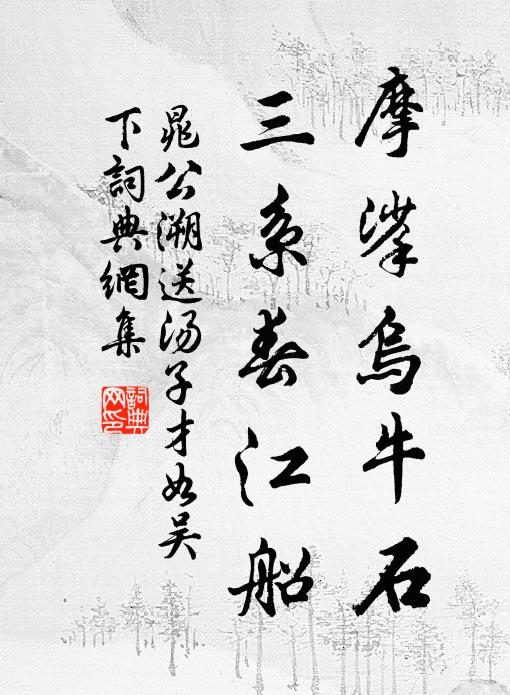 摩挲烏牛石
三系春江船
晁公溯送汤子才如吴
下詞典網集
詞典网印